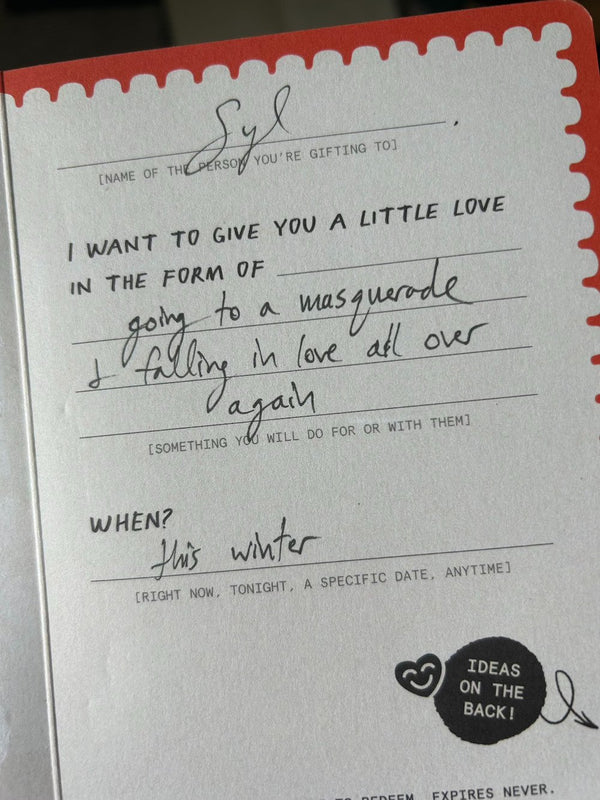 Syl
[NAME OF THE PERSON YOU'RE GIFTING TO]
I WANT TO GIVE YOU A LITTLE LOVE
IN THE FORM OF
going to a masquerade
& falling in love all over
again
[SOMETHING YOU WILL DO FOR OR WITH THEM]
WHEN?
this winter
[RIGHT NOW, TONIGHT, A SPECIFIC DATE, ANYTIME]
IDEAS
ON THE
BACK!
TO REDEEM. EXPIRES NEVER.